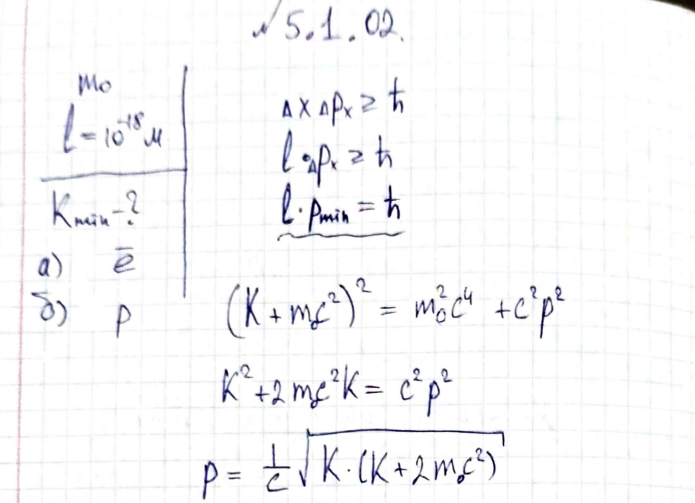 № 5.1.02.
m₀
l = 10⁻¹⁸ м
Kmin - ?
а) ē
б) p
Δx Δpₓ ≥ ħ
l · Δpₓ ≥ ħ
l · pmin = ħ
(K + m₀c²)² = m₀²c⁴ + c²p²
K² + 2m₀c²K = c²p²
p = 1/c √(K · (K + 2m₀c²))